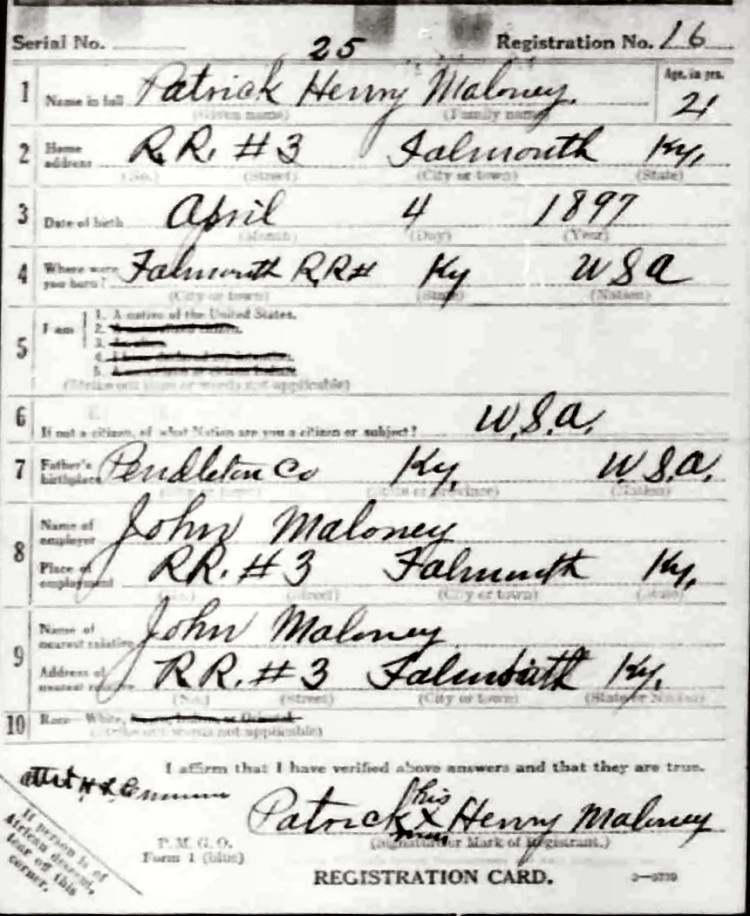 Serial No. 25 Registration No. 16
1 Name in full Patrick Henry Maloney. Age, in yrs. 21
(Given name) (Family name)
2 Home address R.R. #3 Falmouth Ky.
(No.) (Street) (City or town) (State)
3 Date of birth April 4 1897
(Month) (Day) (Year)
4 Where were you born? Falmouth R.R# Ky USA
(City or town) (State) (Nation)
5 I am 1. A native of the United States.
2.
3.
4.
5.
(Strike out lines or words not applicable)
6 If not a citizen, of what Nation are you a citizen or subject? U.S.A.
7 Father's birthplace Pendleton Co Ky. U.S.A.
(City or town) (State or province) (Nation)
8 Name of employer John Maloney
Place of employment RR. #3 Falmouth Ky.
(No.) (Street) (City or town) (State)
9 Name of nearest relative John Maloney
Address of nearest relative RR. #3 Falmouth Ky.
(No.) (Street) (City or town) (State or Nation)
10 Race—White, or Oriental
(Strike out words not applicable)
I affirm that I have verified above answers and that they are true.
attest
his
Patrick X Henry Maloney
(Signature or Mark of Registrant.)
P. M. G. O.
Form 1 (blue)
If person is of
African descent,
tear off this
corner.
REGISTRATION CARD.